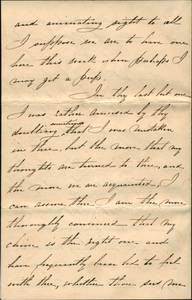 and animating sight to all
I suppose we are to have one
here this week when perhaps I
may get a peep.
In thy last let one
I was rather amused by thy
doubting that I was mistaken
in thee, but the more that my
thoughts are turned to thee, and
the more on an argument I can
assure thee I am the more
thoroughly convinced that my
choice is the right one and
have frequently been led to feel
with thee, whether thee and me